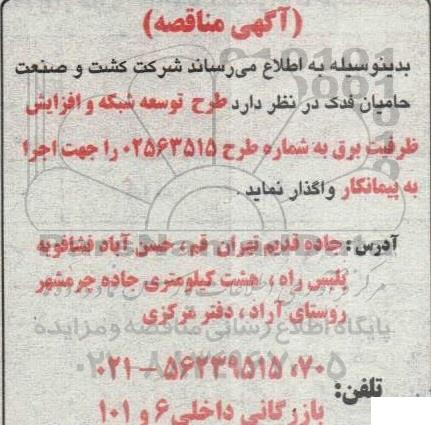 (آگهی مناقصه)
بدینوسیله به اطلاع می‌رساند شرکت کشت و صنعت
حامیان فدک در نظر دارد طرح توسعه شبکه و افزایش
ظرفیت برق به شماره طرح ۰۲۵۶۳۵۱۵ را جهت اجرا
به پیمانکار واگذار نماید.
آدرس: جاده قدیم تهران قم، حسن آباد فشافویه
پلیس راه، هشت کیلومتری جاده چرمشهر
روستای آراد، دفتر مرکزی
تلفن: ۰۲۱ – ۵۶۲۳۹۵۱۵ ،۷۰
بازرگانی داخلی ۶ و ۱۰۱
پایگاه اطلاع رسانی مناقصه و مزایده